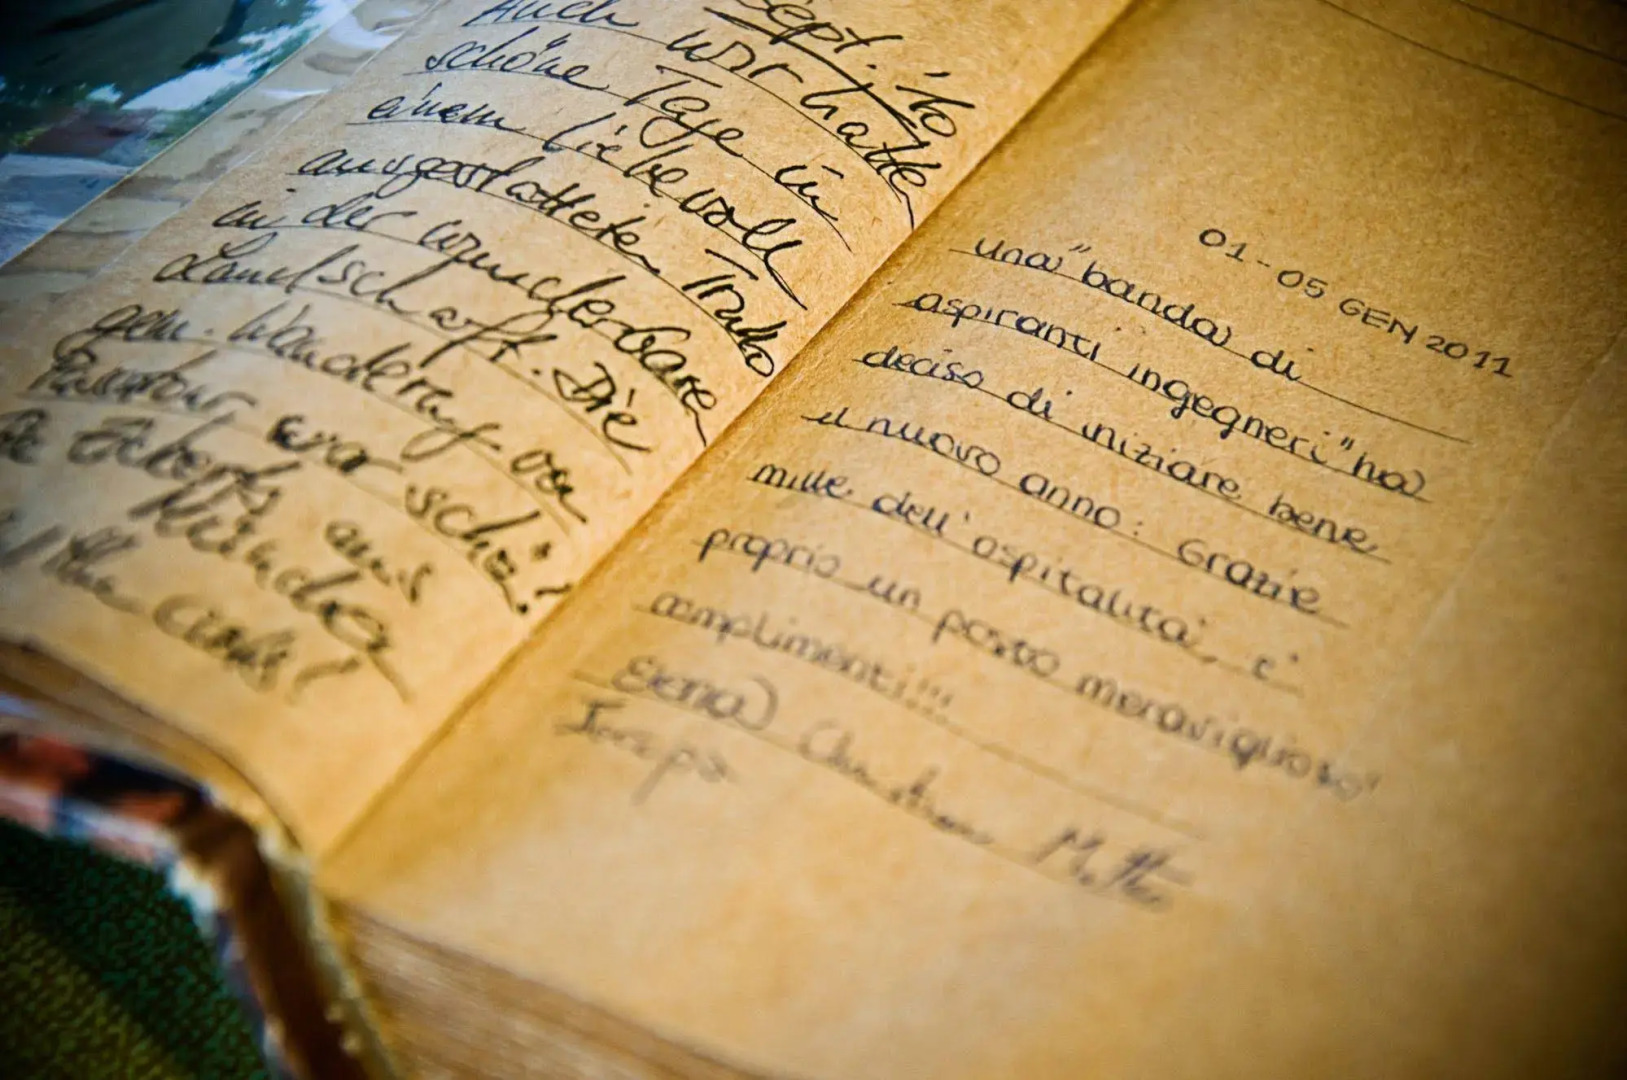 Sept. '10
Auch wir hatten
schöne Tage in
einem liebevoll
ausgestatteten Trullo
in der wunderbaren
Landschaft. Die
gem. Wanderung von
war schön!
aus
München
Ciao!
01-05 GEN 2011
una "banda di
aspiranti ingegneri" ha
deciso di iniziare bene
il nuovo anno: Grazie
mille dell'ospitalità, e'
proprio un posto meraviglioso
complimenti!!!
Elena Christian Matteo